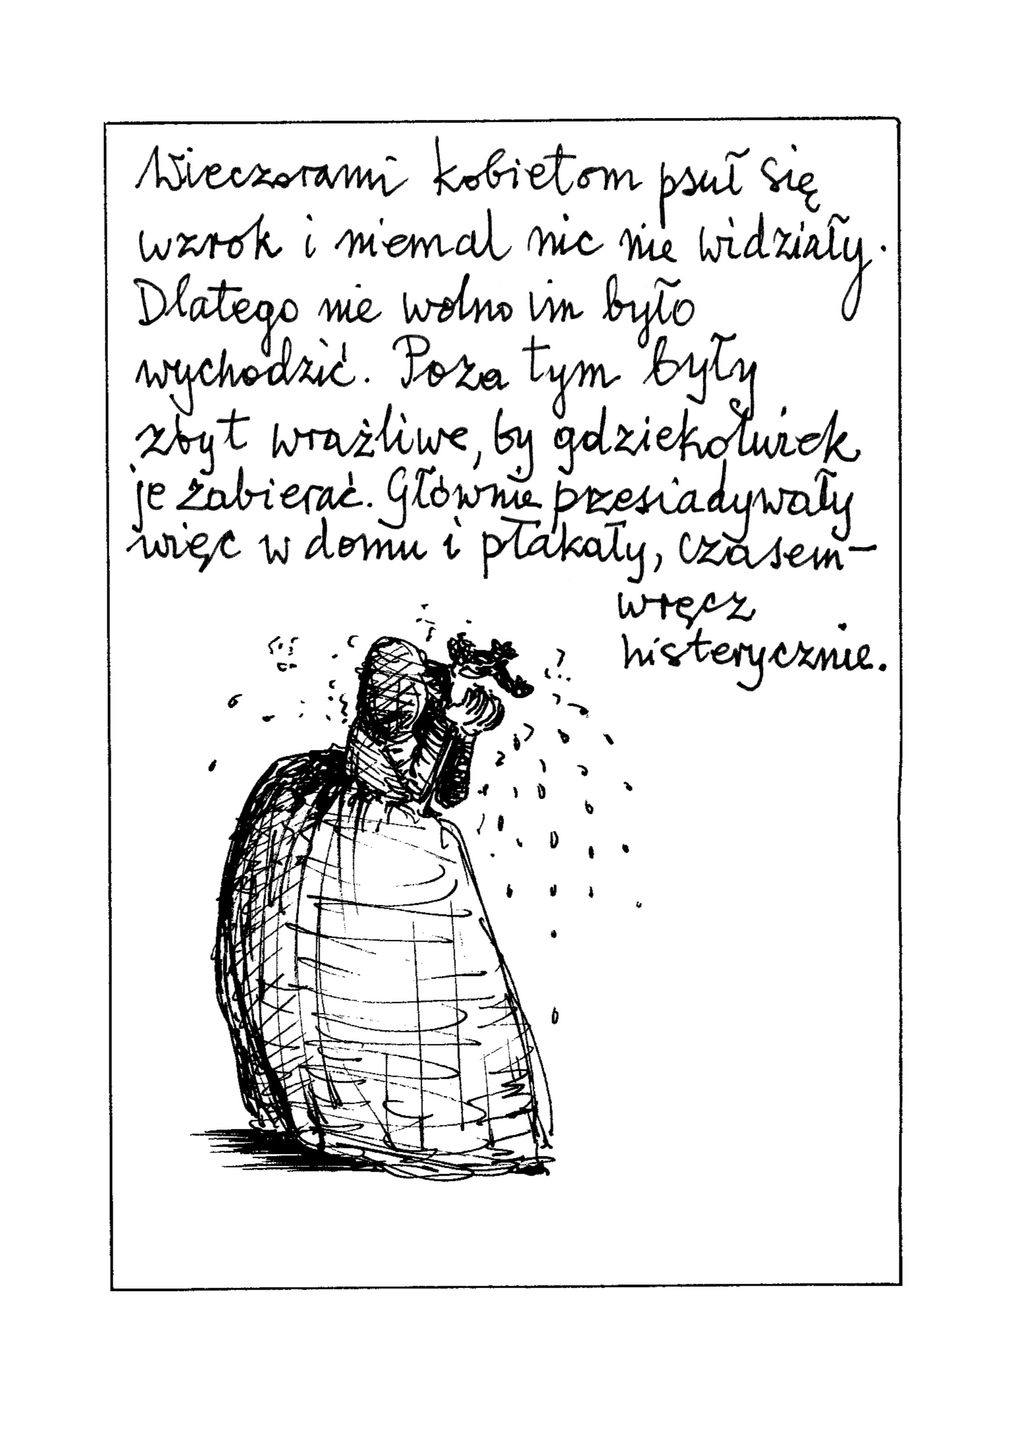 Wieczorami kobietom psuł się
wzrok i niemal nic nie widziały.
Dlatego nie wolno im było
wychodzić. Poza tym były
zbyt wrażliwe, by gdziekolwiek
je zabierać. Głównie przesiadywały
więc w domu i płakały, czasem –
wręcz
histerycznie.